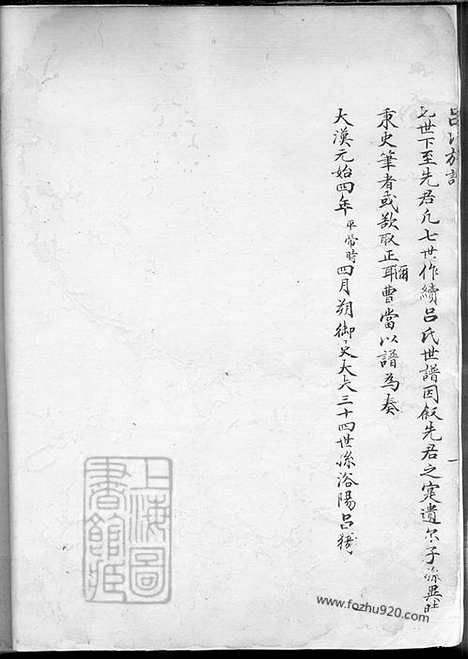 呂氏族譜
世下至先君凡七世作續呂氏世譜因叙先君之寔遺尔子孫異時
秉史筆者或欲取正爾耳曹當以譜為奏
大漢元始四年平帝時四月朔御史大夫三十四世孫洛陽呂
上海圖書館藏
www.fozhu920.com